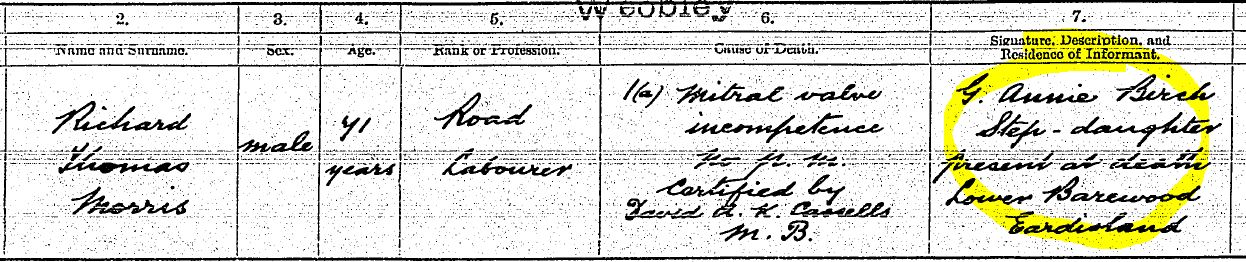 Weobley
2. 3. 4. 5. 6. 7.
Name and Surname. Sex. Age. Rank or Profession. Cause of Death. Signature, Description, and
Residence of Informant.
Richard
Thomas
Morris
male
71
years
Road
Labourer
1(a) Mitral valve
incompetence
No P. M.
Certified by
David A. K. Cassells
M. B.
G. Annie Birch
Step-daughter
present at death
Lower Barewood
Eardisland